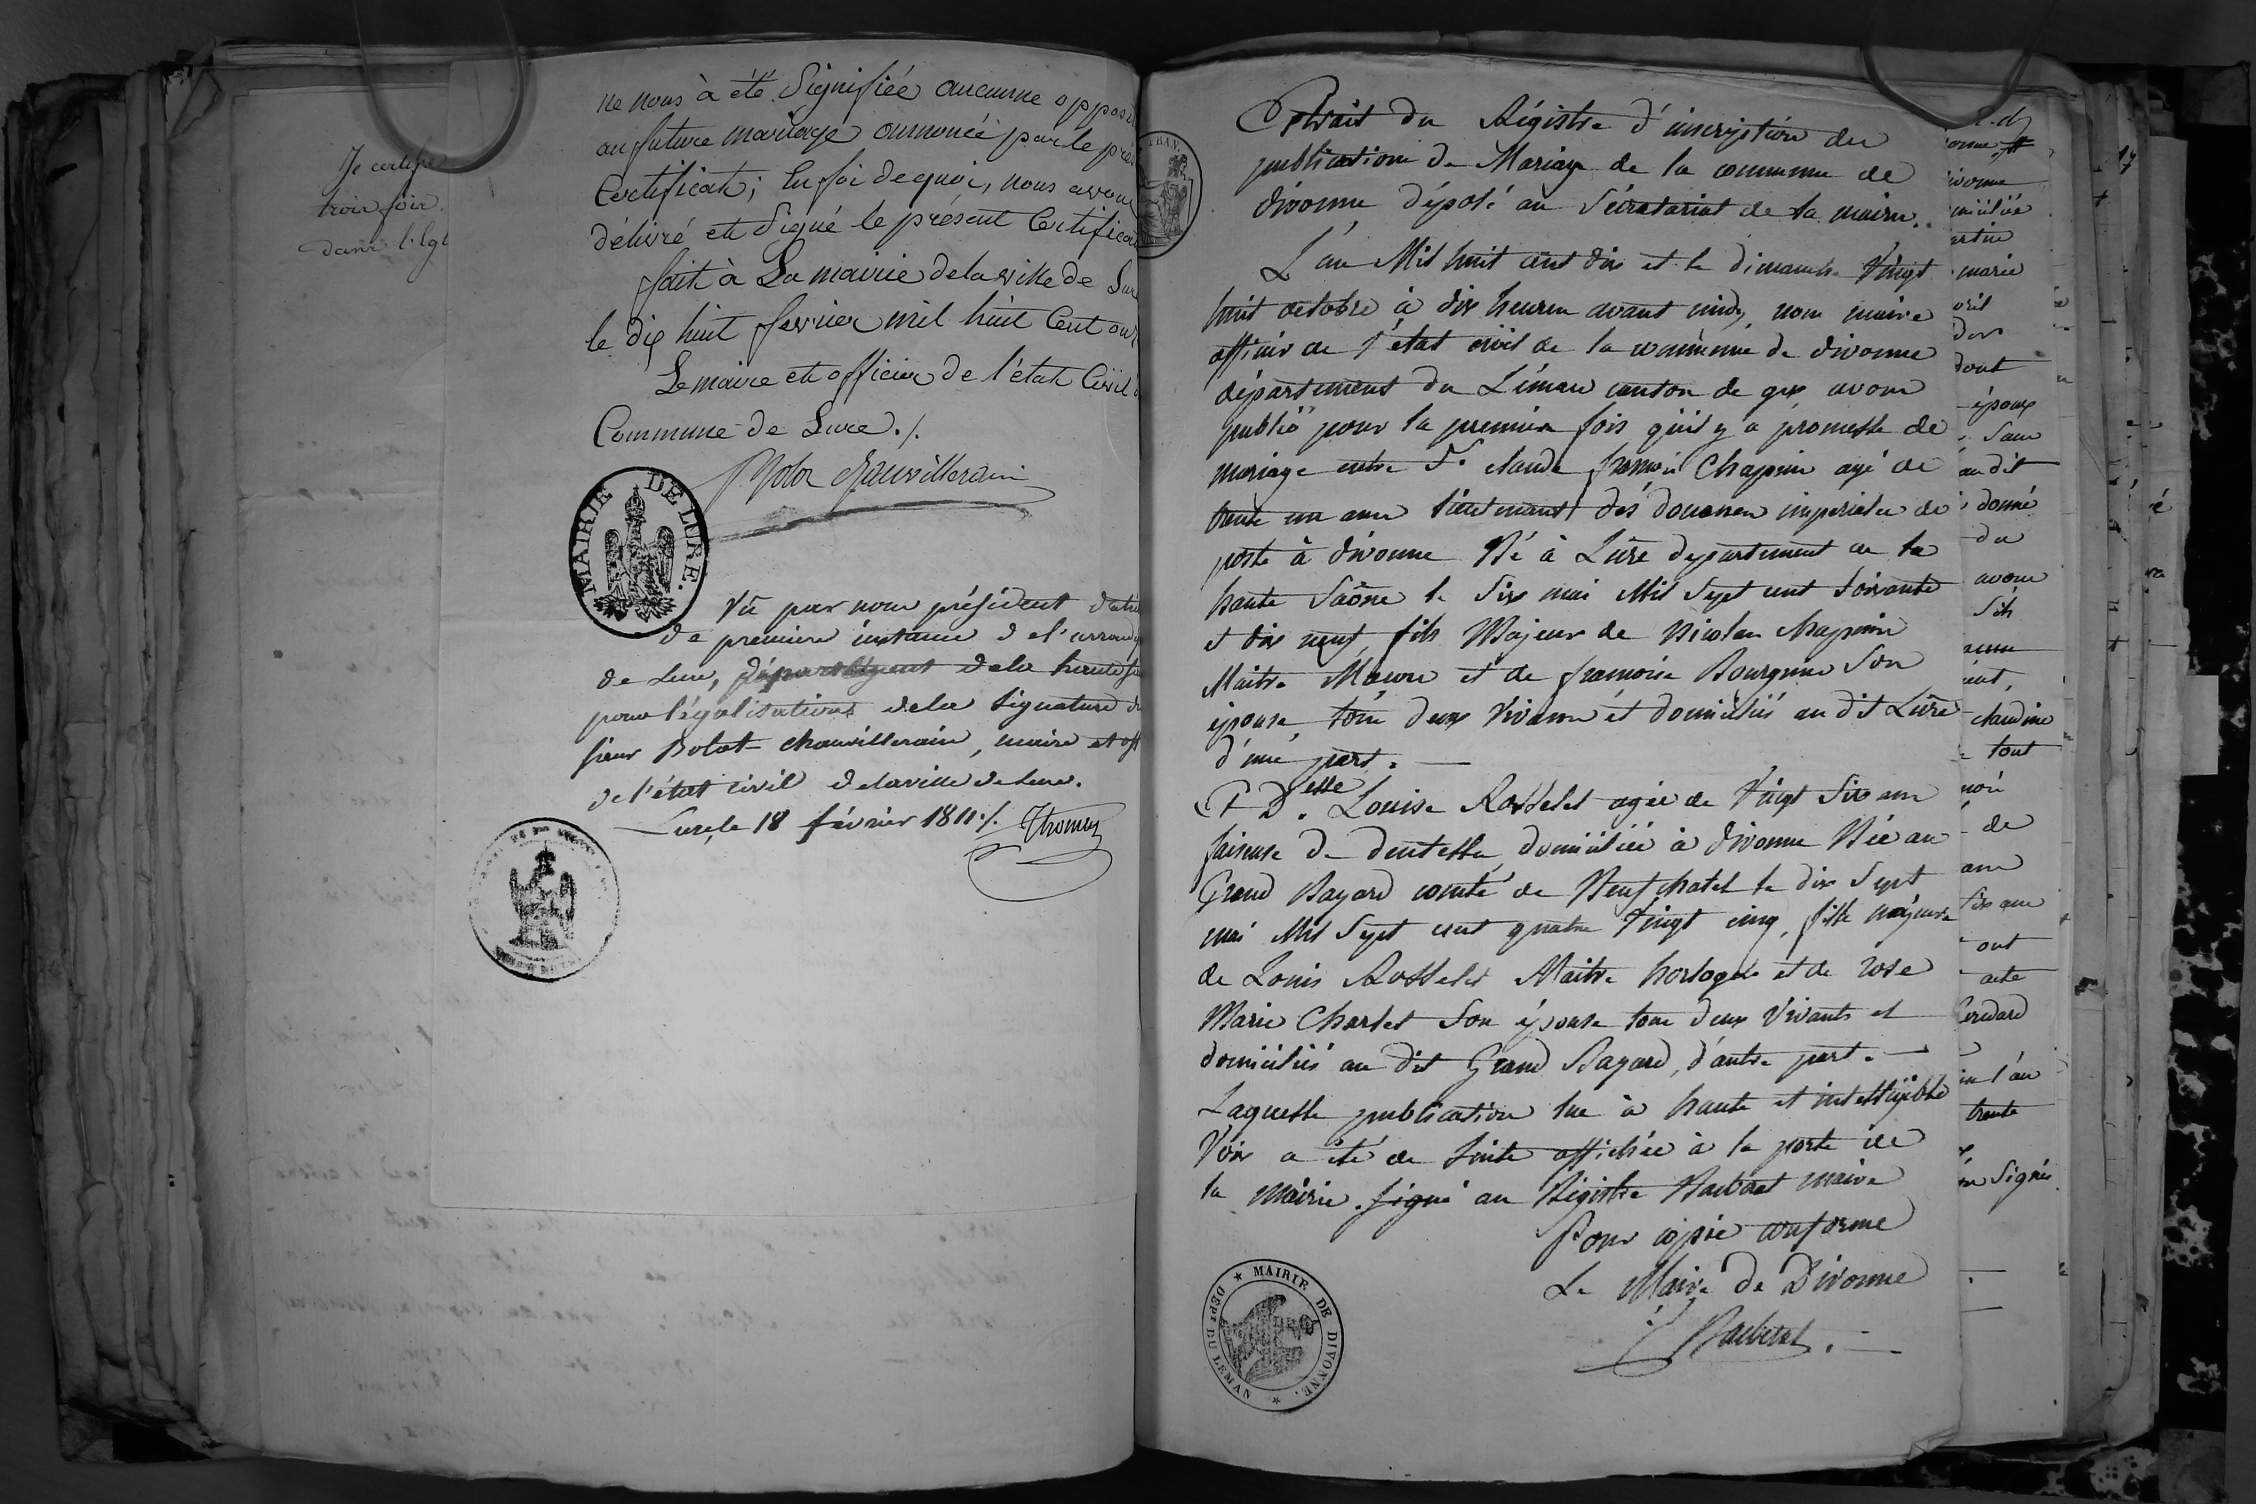 Je certifie
trois fois
dans l'Egl
ne nous à été Signifiée aucunne opposi
au future mariage annoncée par le prés
Certificat; En foi de quoi, nous avons
délivré et Signé le présent Certificat
fait à La mairie de la ville de Lure
le dix huit fevrier mil huit Cent on
Le maire et officier de l'état Civil d
Commune de Lure ./.
MAIRIE DE LURE.
Vû par nous président
de premiere instance de l'arrond
de Lure, département de la haute
pour légalisations de la Signature du
sieur Bolot chauvillerain, maire et off
de l'état civil de la ville de Lure.
Lure, le 18 février 1811 ./. Thomas
Extrait du Régistre d'inscription des
publications de Mariage de la commune de
divonne déposé au Sécrétariat de la mairie.
L'an Mil huit cent dix et le dimanche Vingt
huit octobre à dix heures avant midy, nous maire
officier de l'état civil de la commune de divonne
département du Léman canton de gex avons
publié pour la premier fois qu'il y a promesse de
mariage entre Sr. claude françois Chapuin agé de
trente un ans lieutenant des douanes imperiales de
poste à divonne Né à Lure departement de la
haute Saône le Six mai Mil Sept cent Soixante
et dix neuf, fils Majeur de Nicolas chapuin
Maitre Maçon et de francoise Bourquin Son
épouse, tous deux Vivans et domiciliés au dit Lure
d'une part. —
Et Delle. Louise Rosselet agée de Vingt Six ans
faiseuse de dentelles domiciliée à divonne Née au
Grand Bayard comté de Neufchatel le dix Sept
mai Mil Sept cent quatre Vingt cinq, fille majeure
de Louis Rosselet Maitre horloger et de rose
Marie Charlet Son épouse tous deux Vivants et
domiciliés au dit Grand Bayard, d'autre part. —
Laquelle publication lue à haute et intelligible
Voix a été de Suite affichée à la porte de
la Mairie. Signé au Régistre Barberat maire
Pour copie conforme
Le Maire de Divonne
Barberat .
★ MAIRIE DE DIVONNE. ★ DEPt DU LEMAN
marie
dont
époux
au dit
donné
du
avons
claudine
tout
de
ans
ont
acte
l'an
trente
Signés